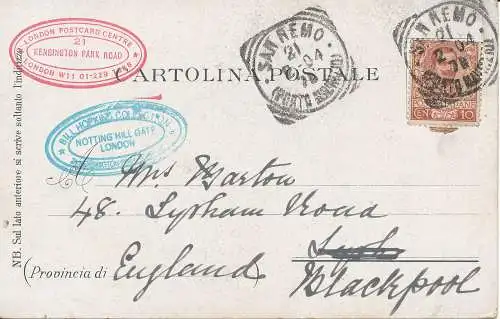 LONDON POSTCARD CENTRE
21
KENSINGTON PARK ROAD
LONDON W11 01-229
SAN REMO
21 04
(PORTO MAURIZIO)
SAN REMO
21 04
CARTOLINA POSTALE
POSTE ITALIANE
CEN 10
BILL HOPKINS COLLECTION
NOTTING HILL GATE
LONDON
NB. Sul lato anteriore si scrive soltanto l'indirizzo
Mrs Barton
48. Lytham Road
(Provincia di England
Blackpool